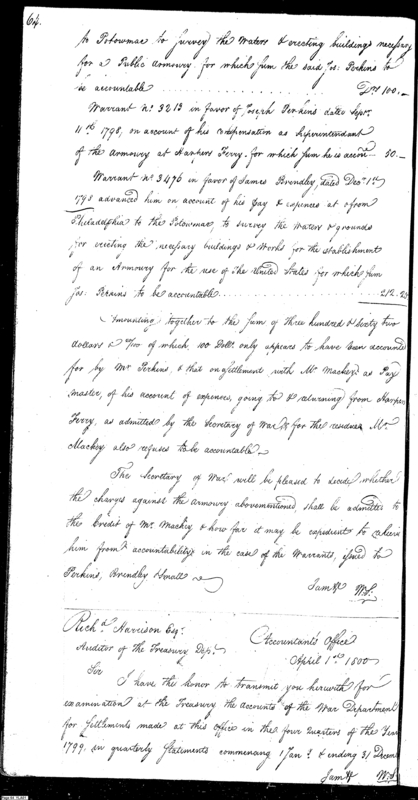 64.
to Potowmac to survey the Waters & erecting buildings necessary
for a Public Armoury for which sum the said Jos: Perkins to
be accountable .......... Drs 100.–
Warrant No. 3213 in favor of Joseph Perkins dated Sepr.
11th 1798, on account of his compensation as Superintendant
of the Armoury at Harpers Ferry. for which sum he is accoe. .. 50.–
Warrant No. 3476 in favor of James Brindley, dated Decr. 1st
1798 advanced him on account of his pay & expences at & from
Philadelphia to the Potowmac, to survey the waters & grounds
for erecting the necessary buildings & Works for the establishment
of an Armoury for the use of the United States for which sum
Jos: Perkins to be accountable .......... 212.
Amounting together to the sum of three hundred & sixty two
dollars & of which, 100 Dolls. only appears to have been accounted
for by Mr Perkins, & that on settlement with Mr Mackey as Pay
master, of his account of expences, going to & returning from Harpers
Ferry, as admitted by the Secretary of War & for the residue Mr
Mackey also refuses to be accountable.–
The Secretary of War will be pleased to decide whether
the charges against the Armoury abovementioned, shall be admitted to
the Credit of Mr. Mackey & how far it may be expedient to relieve
him from accountability in the case of the Warrants, issued to
Perkins, Brindley &
I am & W.S:
Richd. Harrison Esqr.
Auditor of the Treasury Depr.
Accountants Office
April 1st 1800
Sir
I have the honor to transmit you herewith for
examination at the Treasury the accounts of the War Department
for Settlements made at this Office in the four quarters of the Year
1799, in quarterly Statements commencing 1 Jany. & ending 31 Decem
I am & W.S: